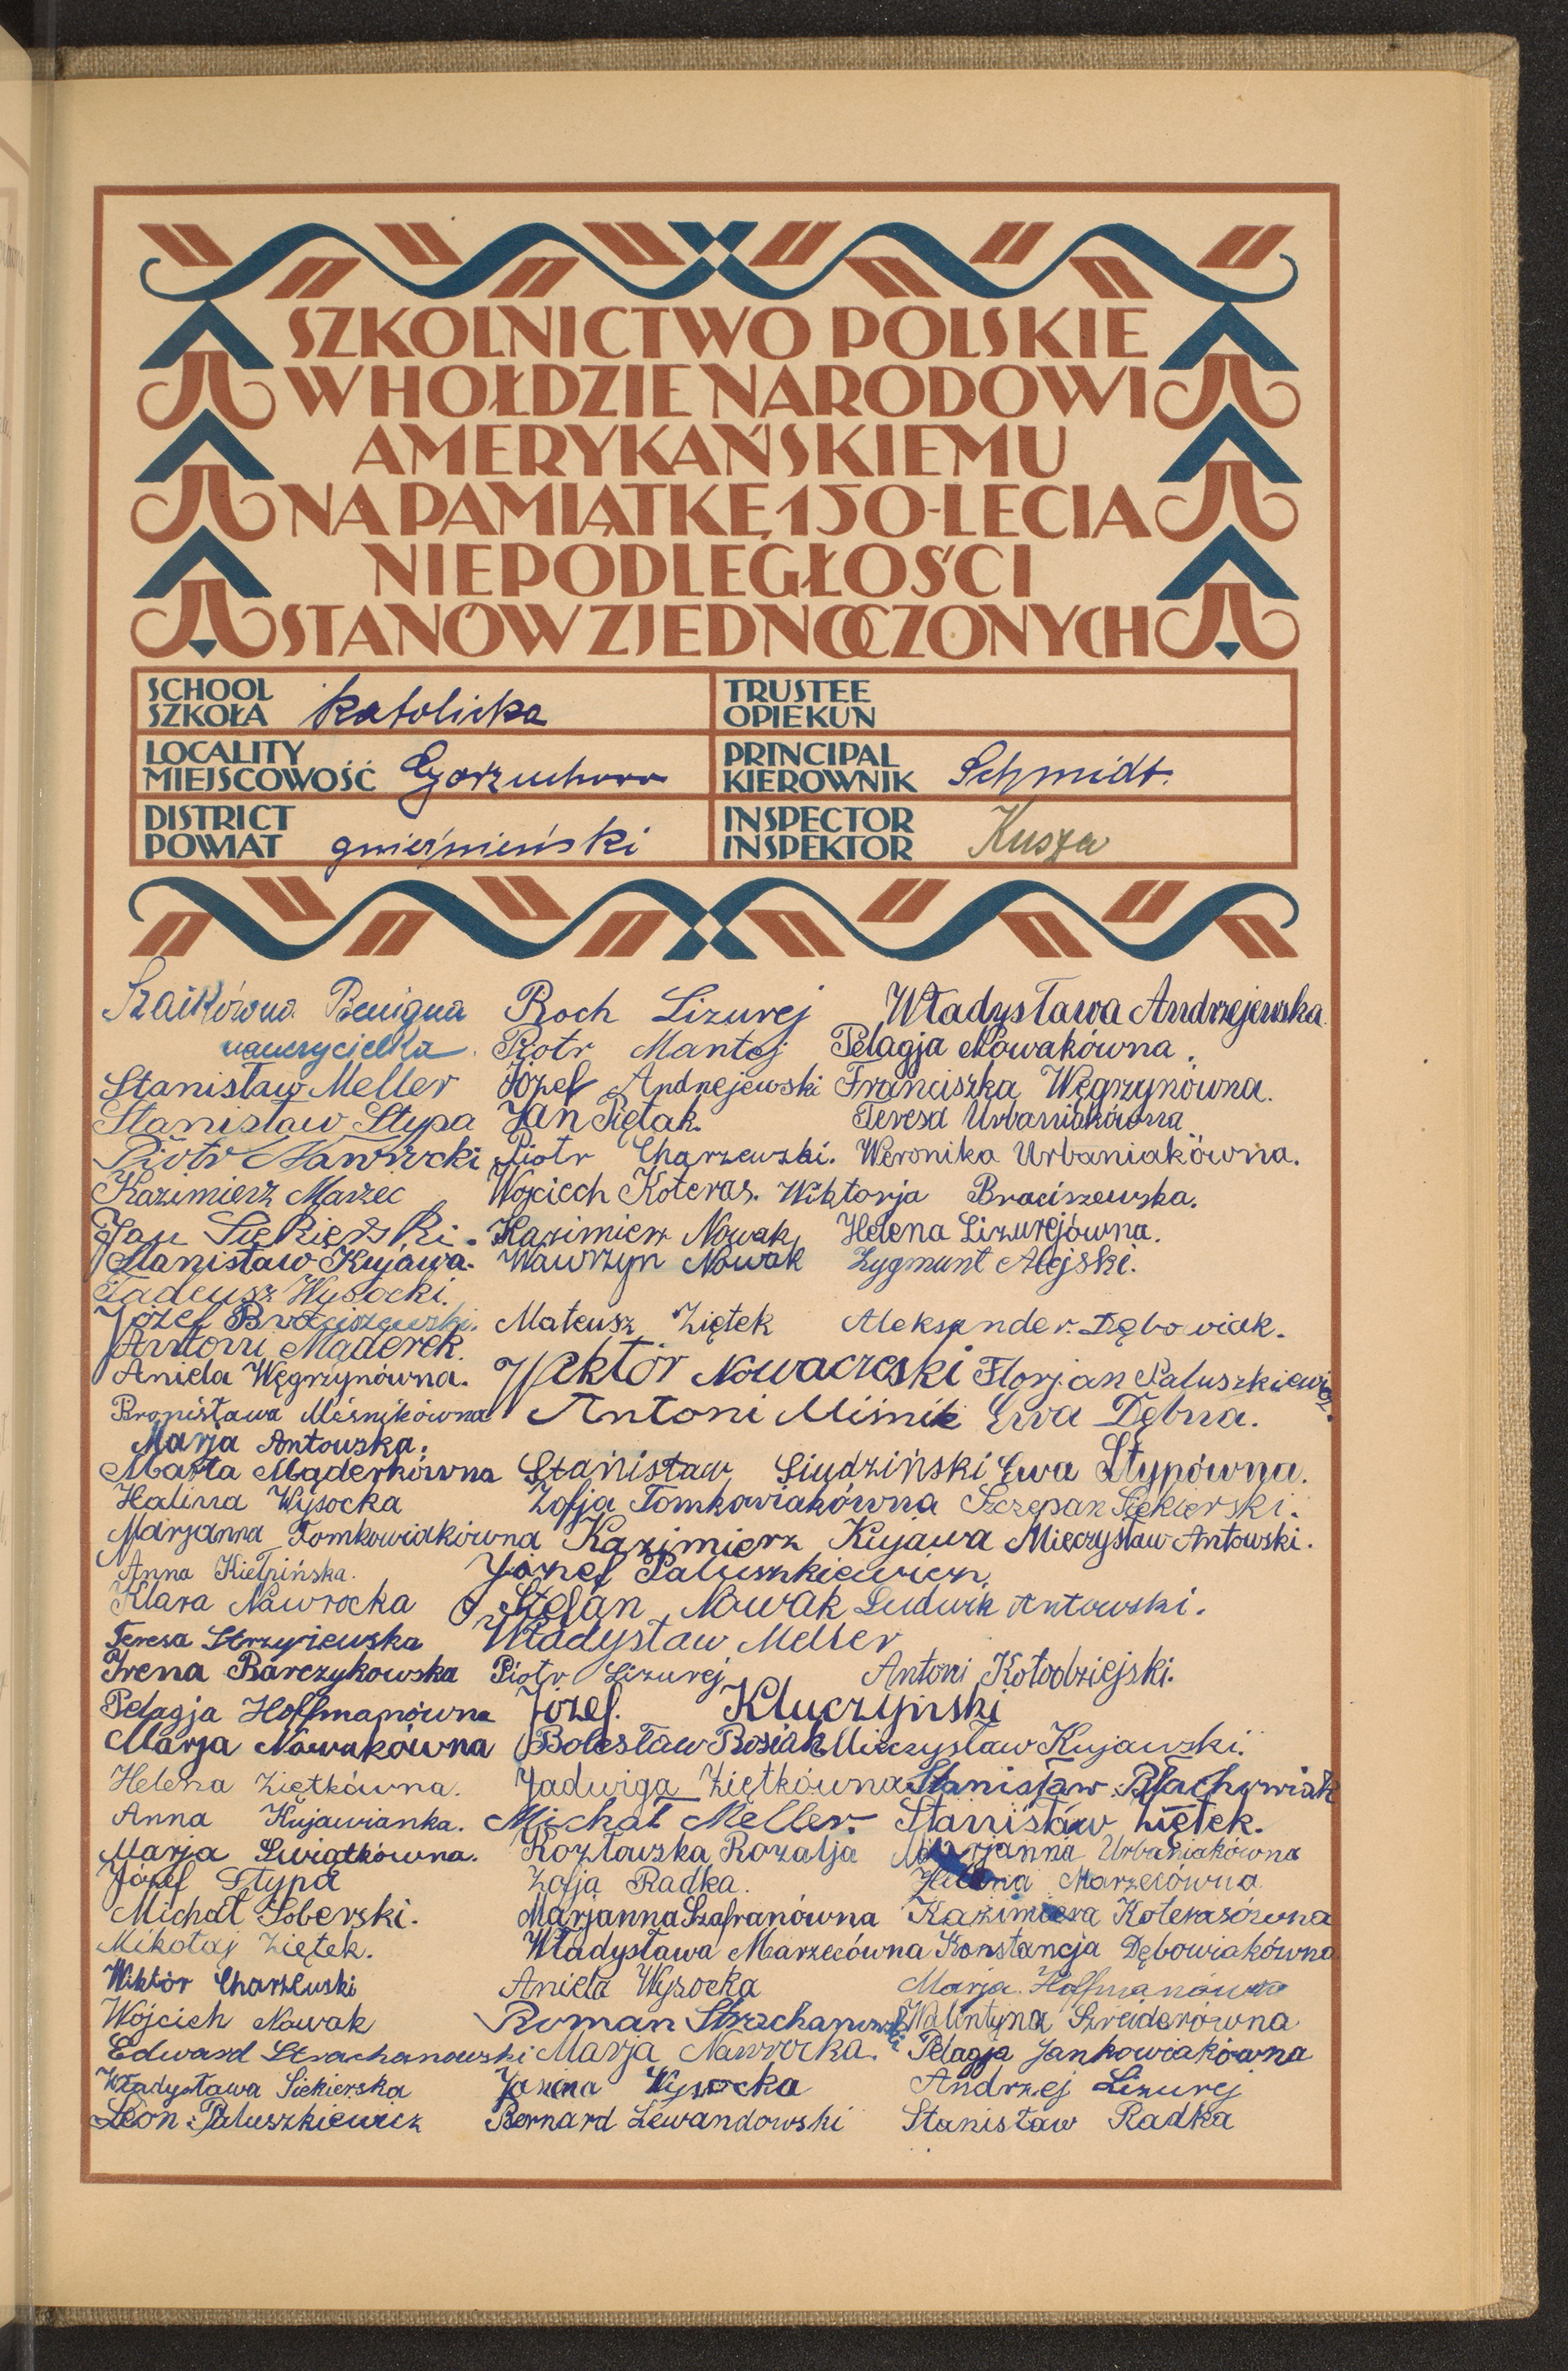 SZKOLNICTWO POLSKIE
W HOŁDZIE NARODOWI
AMERYKAŃSKIEMU
NA PAMIĄTKĘ 150-LECIA
NIEPODLEGŁOŚCI
STANÓW ZJEDNOCZONYCH
SCHOOL
SZKOŁA Katolicka
TRUSTEE
OPIEKUN
LOCALITY
MIEJSCOWOŚĆ Gorzuchowo
PRINCIPAL
KIEROWNIK Schmidt.
DISTRICT
POWIAT gnieźnieński
INSPECTOR
INSPEKTOR Kusza
Szaikówna Benigna
nauczycielka
Stanisław Meller
Stanisław Stypa
Piotr Nawrocki
Kazimierz Marzec
Jan Siekierski.
Stanisław Kujawa.
Tadeusz Wysocki.
Józef Braciszewski.
Antoni Mąderek.
Aniela Węgrzynówna.
Bronisława Miśnikówna
Marja Antowska.
Marta Mąderkówna
Halina Wysocka
Marjanna Tomkowiakówna
Anna Kiełpińska.
Klara Nawrocka
Teresa Strzyżewska
Irena Barczykowska
Pelagja Hoffmanówna
Marja Nowakówna
Helena Ziętkówna.
Anna Kujawianka.
Marja Świątkówna.
Józef Stypa
Michał Soberski.
Mikołaj Ziętek.
Wiktór Charzewski
Wojciech Nowak
Edward Strachanowski
Władysława Siekierska
Leon Paluszkiewicz
Roch Lizurej
Piotr Mantej
Józef Andrzejewski
Jan Piętak.
Piotr Charzewski.
Wojciech Koteras.
Kazimierz Nowak
Wawrzyn Nowak
Mateusz Ziętek
Wiktór Nowaczeski
Antoni Miśnik
Stanisław Siudziński
Zofja Tomkowiakówna
Kazimierz Kujawa
Józef Paluszkiewicz.
Stefan Nowak
Władysław Meller
Piotr Lizurej
Józef. Kluczyński
Bolesław Rosiak
Jadwiga Ziętkówna
Michał Meller.
Kozłowska Rozalja
Zofja Radka.
Marjanna Szafranówna
Władysława Marzecówna
Aniela Wysocka
Roman Strachanowski
Marja Nawrocka.
Janina Wysocka
Bernard Lewandowski
Władysława Andrzejewska.
Pelagja Nowakówna.
Franciszka Węgrzynówna.
Teresa Urbaniakówna
Weronika Urbaniakówna.
Wiktorja Braciszewska.
Helena Lizurejówna.
Zygmunt Alejski.
Aleksander Dębowiak.
Florjan Paluszkiewicz.
Ewa Dębna.
Ewa Stypówna.
Szczepan Siekierski.
Mieczysław Antowski.
Ludwik Antowski.
Antoni Kołodziejski.
Mieczysław Kujawski.
Stanisław Błachowiak
Stanisław Ziętek.
Marjanna Urbaniakówna
Helena Marzecówna
Kazimiera Koterasówna
Konstancja Dębowiakówna
Marja Hoffmanówna
Walentyna Szreiderówna
Pelagja Jankowiakówna
Andrzej Lizurej
Stanisław Radka